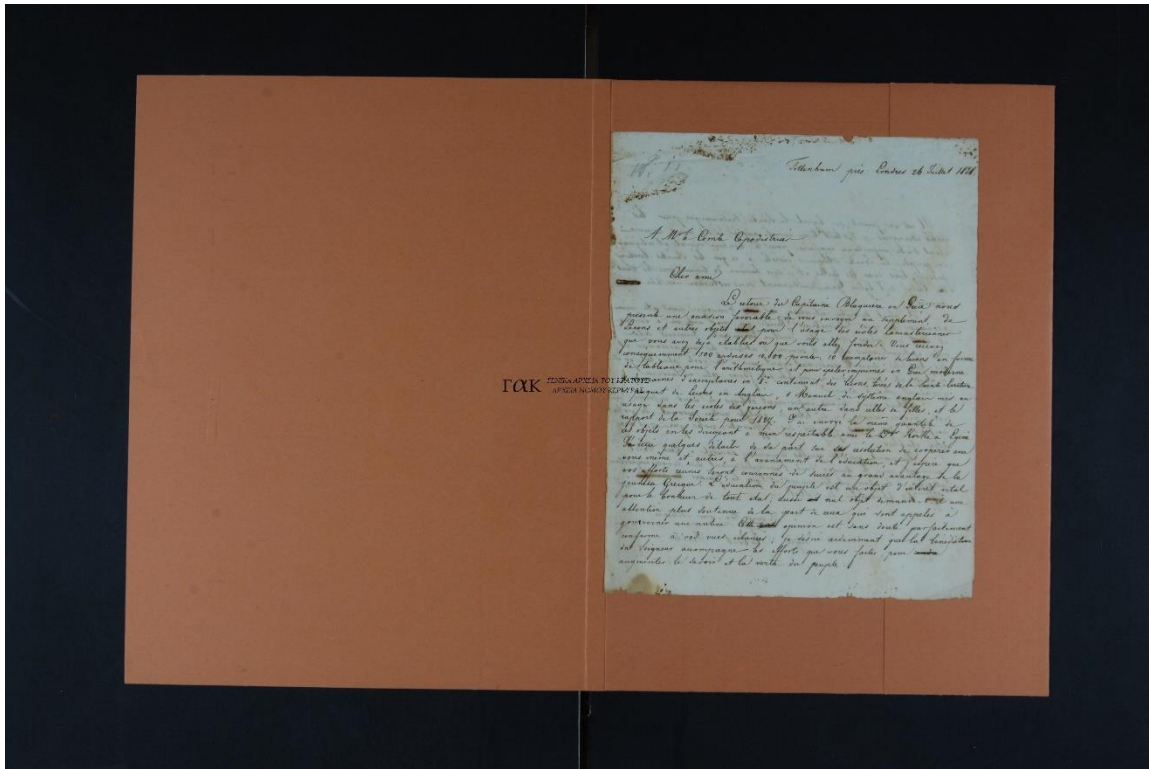 Tottenham près Londres 26 Juillet 1828
A Mr le Comte Capodistrias
Cher ami
Le retour du Capitaine Blaquiere en Grèce nous
présente une occasion favorable de vous envoyer un supplement, de
Leçons et autres objets pour l'usage des écoles Lancasteriennes
que vous avez déjà établies ou que vous allez fonder. Vous recevrez
consequemment 1100 ardoises 10,000 10 de leçons en forme
de tableaux pour l'arithmétique et pour epeler imprimées en Grec moderne
d'exemplaires in 8o contenant des leçons tirées de la Sainte Ecriture
paquet de Leçons en Anglais, 1 Manuel du système anglais mis en
usage dans les écoles des garçons, un autre dans celles de filles, et le
rapport de la Société pour 1827. J'ai envoyé la même quantité de
ces objets en les à mon respectable ami le Dr Korck à
quelques détails de sa part sur sa resolution de cooperer avec
vous même et autres à l'avancement de l'éducation, et j'espère que
vos efforts reunis seront couronnés de succès au grand avantage de la
jeunesse Grecque. L'éducation du peuple est un objet d'interet vital
pour le bonheur de tout état, aussi nul objet demande-t-il une
attention plus soutenue de la part de ceux qui sont appelés à
gouverner une nation. Cette opinion est sans doute parfaitement
conforme à vos vues éclairées; je desire ardemment que la bénédiction
du Seigneur accompagne les efforts que vous faites pour
augmenter le savoir et la vertu du peuple.
ΓΑΚ ΓΕΝΙΚΑ ΑΡΧΕΙΑ ΤΟΥ ΚΡΑΤΟΥΣ
ΑΡΧΕΙΑ ΝΟΜΟΥ ΚΕΡΚΥΡΑΣ